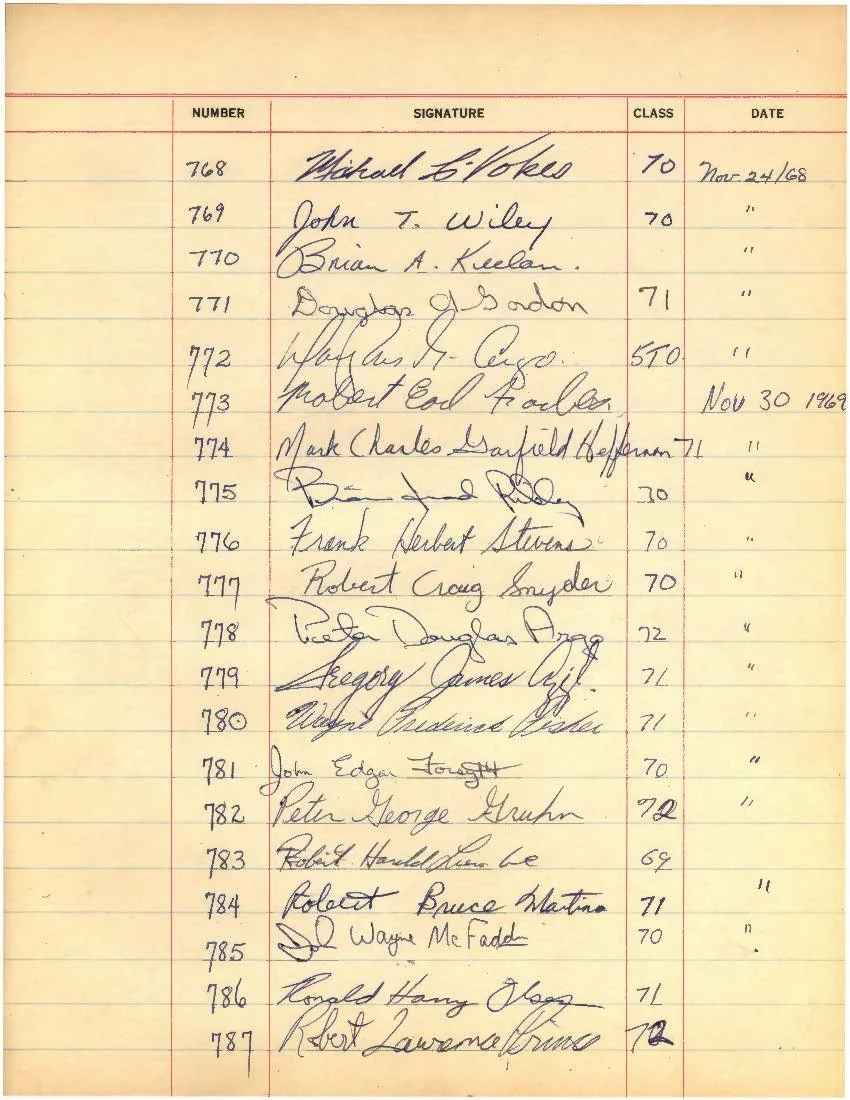 NUMBER SIGNATURE CLASS DATE
768 Michael L. Vokes 70 Nov. 24/68
769 John T. Wiley 70 "
770 Brian A. Keelan. "
771 Douglas J Gordon 71 "
772 5T0 "
773 Robert Earl Nov 30 1969
774 Mark Charles Garfield Heffernan 71 "
775 Brian 30 "
776 Frank Herbert Stevens 70 "
777 Robert Craig Snyder 70 "
778 Peter Douglas Aragg 72 "
779 Gregory James 71 "
780 Wayne Frederick Fisher 71 "
781 John Edgar Forsyth 70 "
782 Peter George Gruhn 72 "
783 Robert Harold 69
784 Robert Bruce Martin 71 "
785 Wayne McFadd 70 "
786 Ronald Harry Olsen 71
787 Robert Lawrence Prince 72